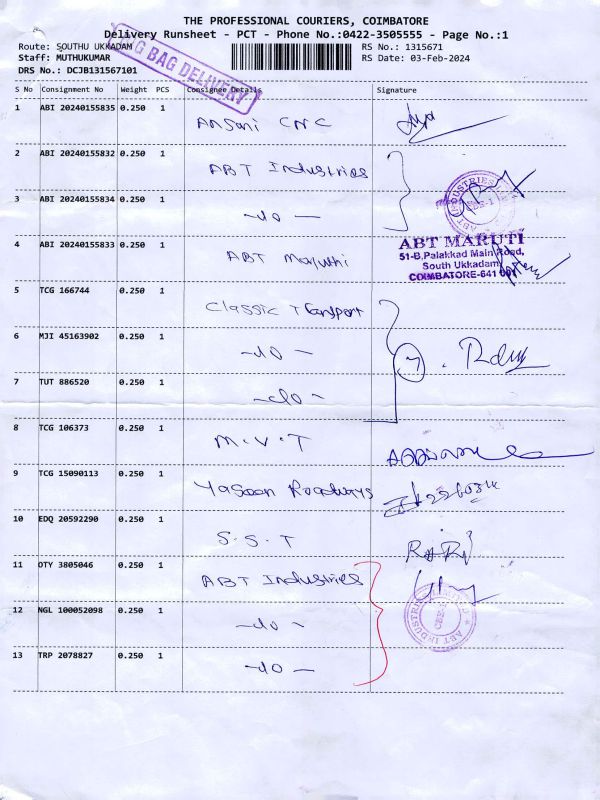 THE PROFESSIONAL COURIERS, COIMBATORE
Delivery Runsheet - PCT - Phone No.:0422-3505555 - Page No.:1
Route: SOUTHU UKKADAM
RS No.: 1315671
Staff: MUTHUKUMAR
RS Date: 03-Feb-2024
DRS No.: DCJB131567101
BAG DELIVERY
S No Consignment No Weight PCS Consignee Details Signature
1 ABI 20240155835 0.250 1 Ansari CNC
2 ABI 20240155832 0.250 1 ABT Industries
3 ABI 20240155834 0.250 1 -do-
ABT INDUSTRIES
4 ABI 20240155833 0.250 1 ABT Maruthi
ABT MARUTI
51-B,Palakkad Main Road,
South Ukkadam
COIMBATORE-641 001
5 TCG 166744 0.250 1 Classic Transport
6 MJI 45163902 0.250 1 -do-
7 TUT 886520 0.250 1 -do-
8 TCG 106373 0.250 1 M.V.T
9 TCG 15090113 0.250 1 Yaseen Roadways
10 EDQ 20592290 0.250 1 S.S.T
11 OTY 3805046 0.250 1 ABT Industries
12 NGL 100052098 0.250 1 -do-
ABT INDUSTRIES LIMITED
13 TRP 2078827 0.250 1 -do-